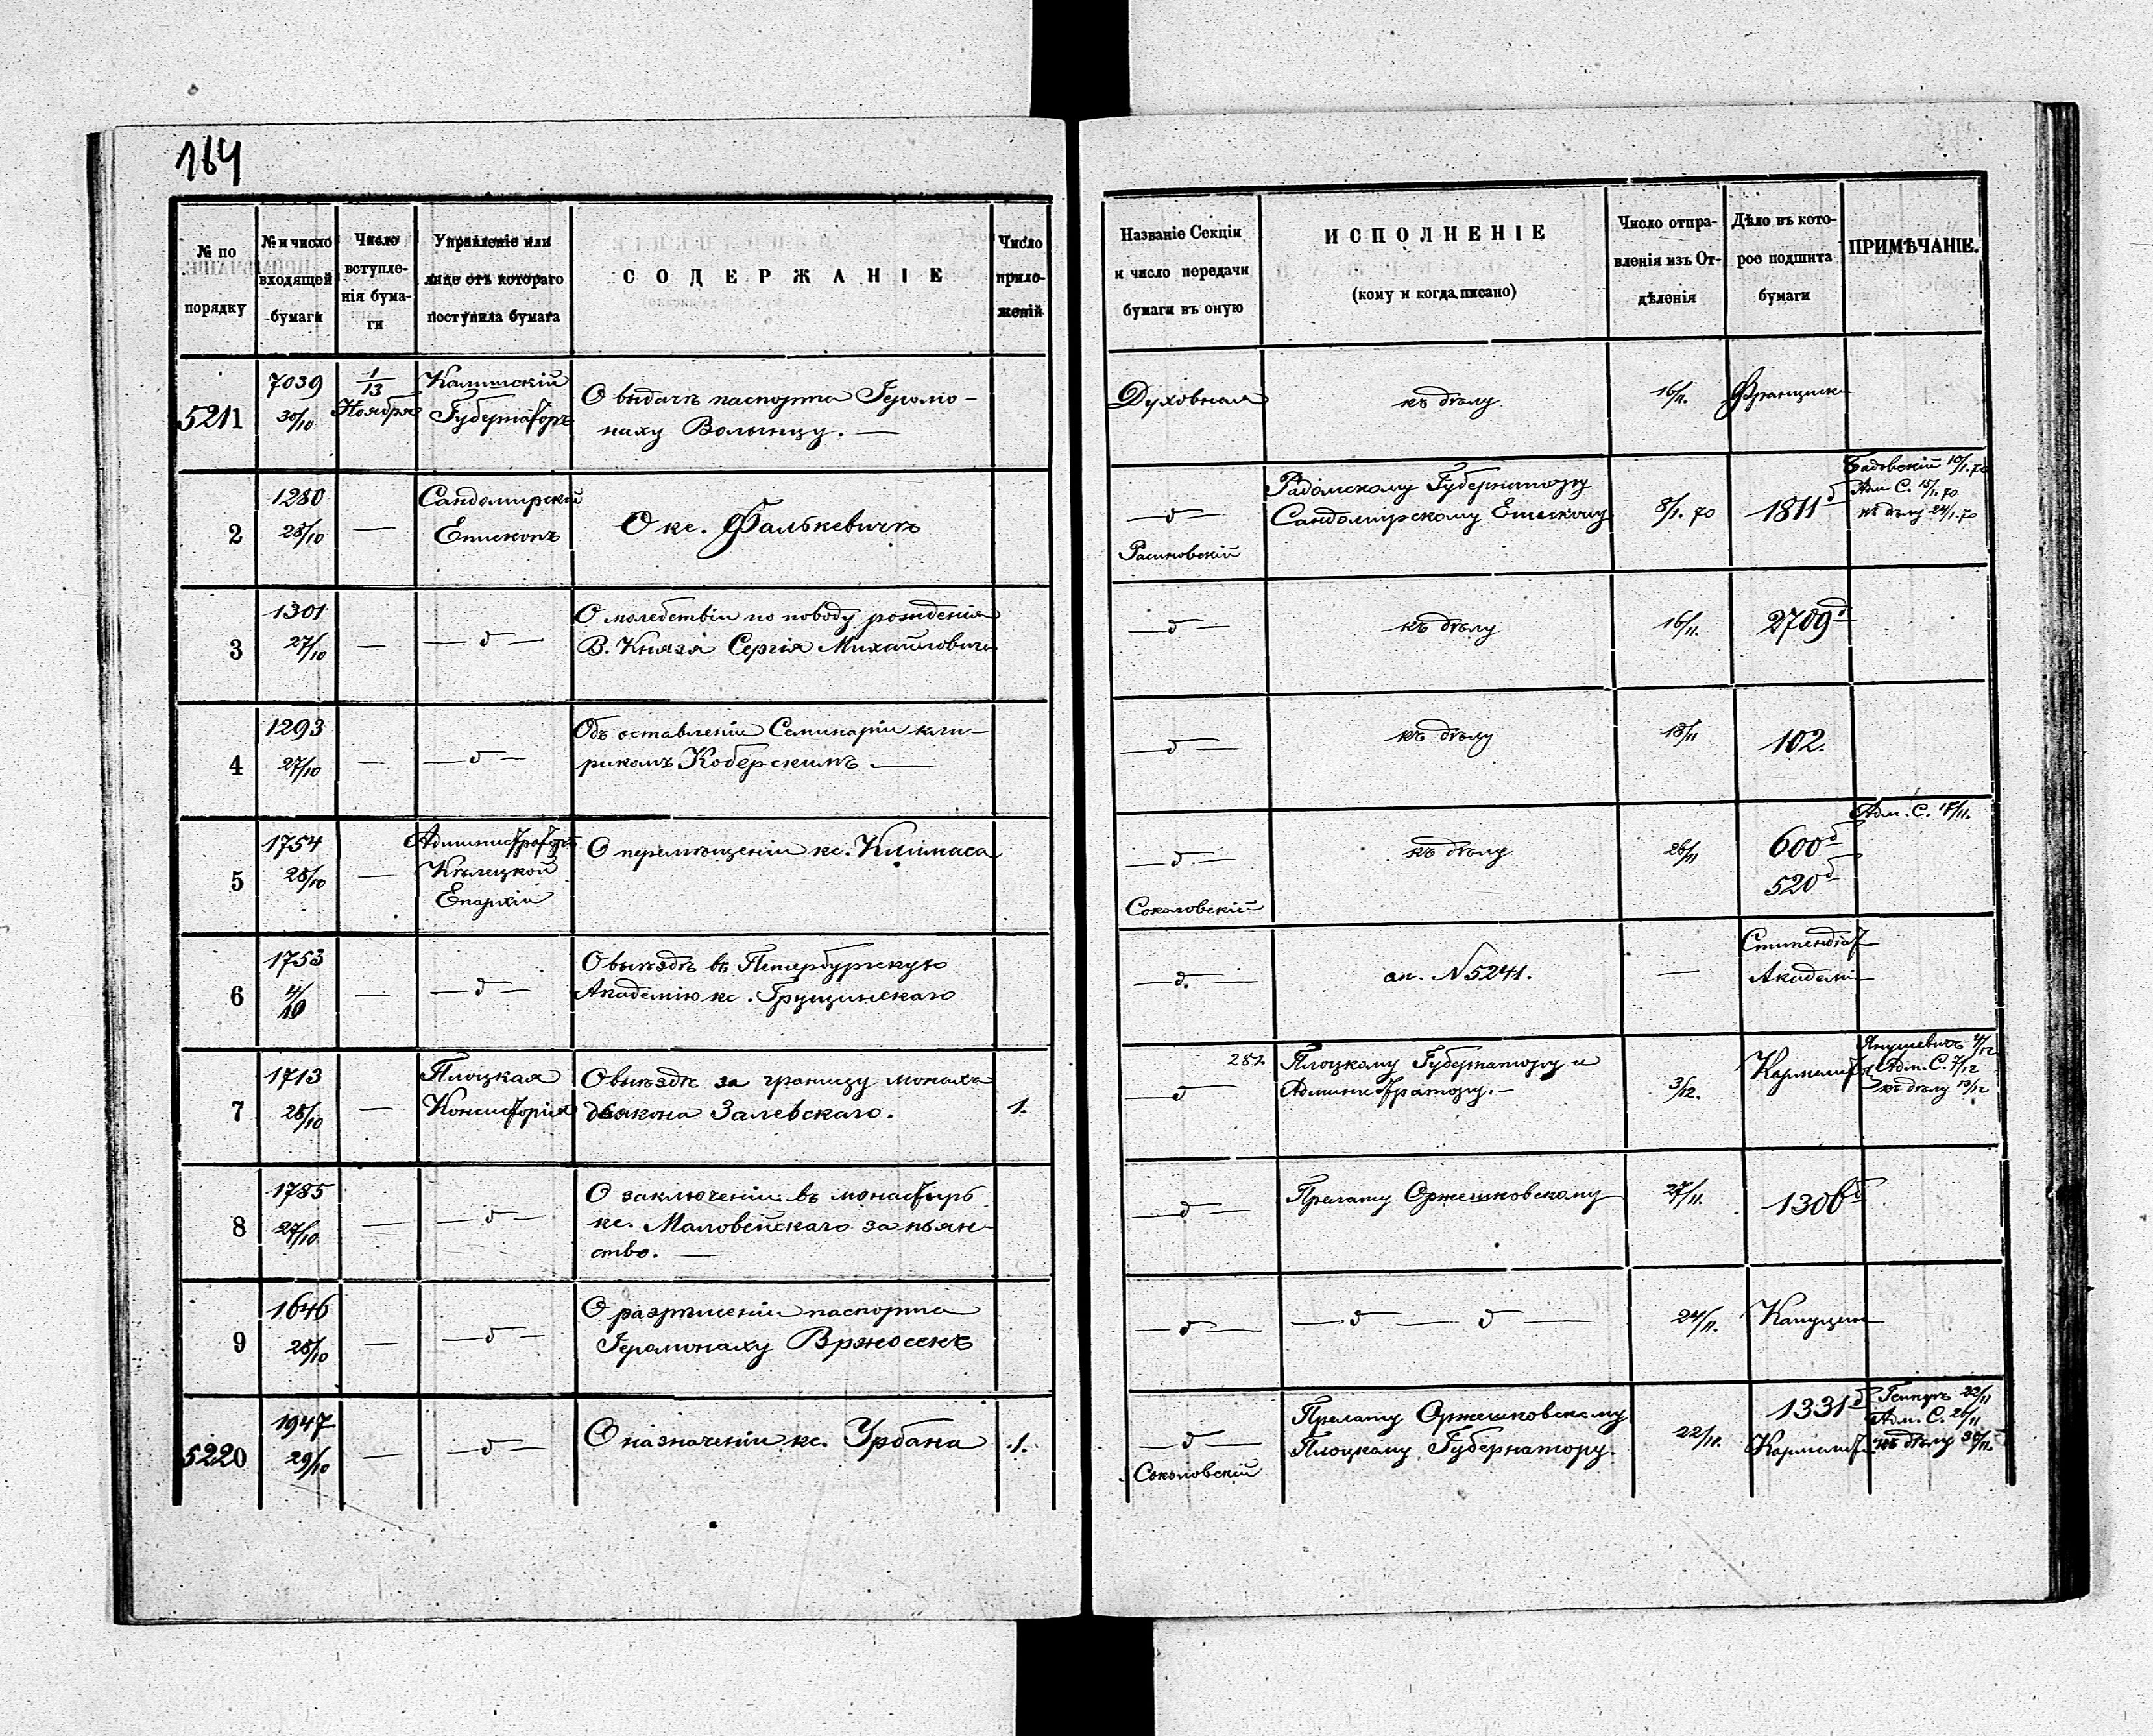 164
№ по порядку
№ и число входящей бумаги
Число вступле-нія бума-ги
Управленіе или лице отъ котораго поступила бумага
СОДЕРЖАНІЕ
Число прило-женій
Названіе Секціи и число передачи бумаги въ оную
ИСПОЛНЕНІЕ
(кому и когда писано)
Число отпра-вленія изъ От-дѣленія
Дѣло въ кото-рое подшита бумаги
ПРИМѢЧАНІЕ.
5211
7039
30/10
1/13 Ноября
Калишскій
Губернаторъ
О выдачѣ паспорта Іеромо-
наху Волынцу. —
Духовная
къ дѣлу
16/11.
Францискан
2
1280
28/10
—
Сандомирскій
Епископъ
О кс. Фалькевичѣ
— д —
Радомскому Губернатору
Сандомирскому Епископу
8/1. 70
1811 д
10/1. 70
Адм С. 15/1. 70
къ дѣлу 24/1. 70
3
1301
27/10
—
— д —
О молебствіи по поводу рожденія
В. Князя Сергія Михайловича
— д —
къ дѣлу
16/11.
2709 д
4
1293
27/10
—
— д —
Объ оставленіи Семинаріи кли-
рикомъ Коберскимъ —
— д —
къ дѣлу
18/11
102.
5
1754
28/10
—
Администраторъ
Кѣлецкой
Епархіи
О перемѣщеніи кс. Климаса
— д —
Соколовскій
къ дѣлу
26/11
600 д
520 д
Адм. С. 18/11.
6
1753
—
— д —
О выѣздѣ въ Петербургскую
Академію кс. Грущинскаго
— д. —
ол. № 5241.
—
Стипендіат
Академіи
7
1713
28/10
—
Плоцкая
Консисторія
О выѣздѣ за границу монаха
дьякона Залевскаго.
1.
281.
— д
Плоцкому Губернатору и
Администратору. —
3/12.
Кармелит
Янушевичъ 4/12
Адм. С. 7/12
къ дѣлу 13/12
8
1785
27/10
—
— д —
О заключеніи въ монастырь
кс. Маловейскаго за пьян-
ство. —
— д —
Прелату Оржешковскому
27/11.
1306 д
9
1646
28/10
—
— д —
О разрѣшеніи паспорта
Іеромонаху Вржосекъ
— д —
— д — д —
24/11.
Капуцин
5220
1947
29/10
—
— д —
О назначеніи кс. Урбана
1.
— д —
Соколовскій
Прелату Оржешковскому
Плоцкому Губернатору.
22/11.
1331 д
Кармелит
22/11
Адм. С. 26/11
къ дѣлу 30/11.